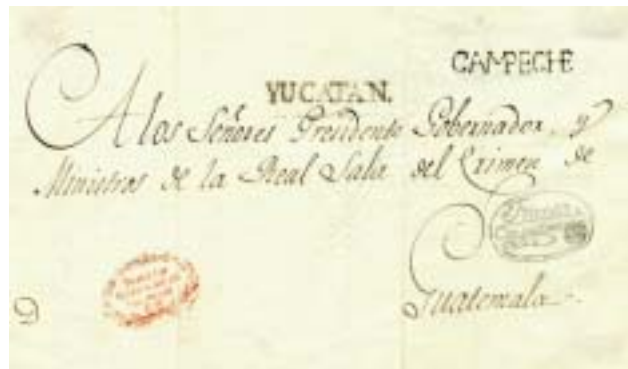 CAMPECHE
YUCATAN.
A los Señores Presidente Gobernador, y
Ministros de la Real Sala del Crimen de
Guatemala.